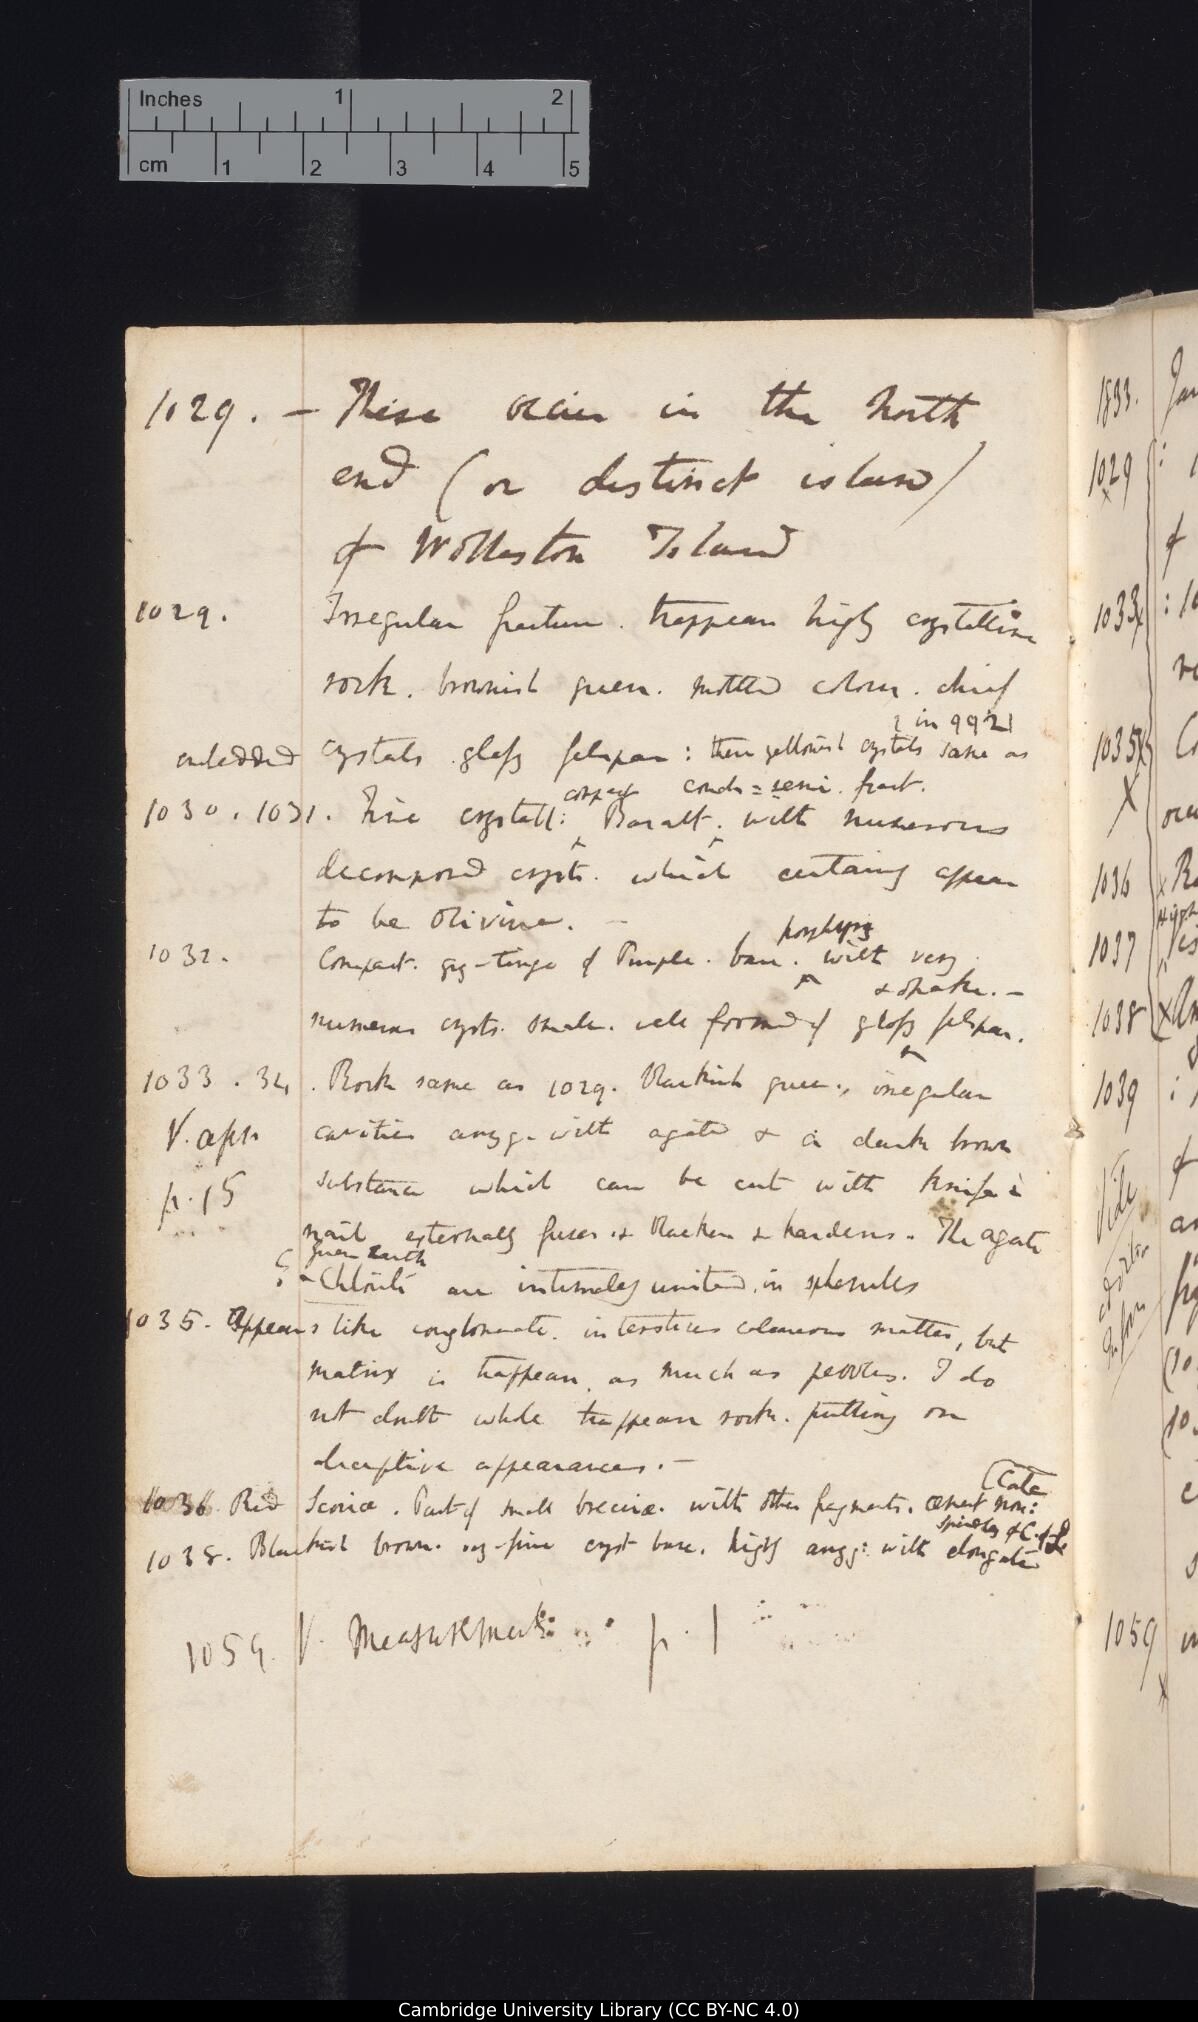 Inches 1 2
cm 1 2 3 4 5
1029. — These occur in the North
end (or distinct island)
of Wollaston Island
1029. Irregular fracture. trappean highly crystalline
rock. brownish green. mottled colour. chief
? in 992
embedded crystals glassy felspar: there yellowish crystals same as
compact conch = semi. fract.
1030. 1031. Fine crystall: Basalt. with numerous
decomposed cryst. which certainly appear
to be Olivine. —
porphyry
1032. Compact. grey-tinge of Purple. base. with very
& opake. —
numerous crysts. small. well formed of glassy felspar.
1033. 34. Rock same as 1029. Blackish green., irregular
V. apn cavities amyg. with agate & a dark brown
p. 15 substance which can be cut with knife &
nail externally fuses & blacken & hardens. The agate
green Earth
? Chlorite are intimately united in spherules
1035. Appears like conglomerate. interstices calcareous matter, but
matrix is trappean, as much as pebbles. I do
not doubt whole trappean rock. putting on
deceptive appearances. —
(Calc
1036. Red Scoriæ. Part of small brecciæ. with other fragments. cement non:
spindles of C. of L
1038. Blackish brown. fine cryst base. highly amyg: with elongated
1059. V. Measurement p. 1
1833. Jan
1029
of
1033
1035
1036
1037
1038
1039
of
Vide
1059
Cambridge University Library (CC BY-NC 4.0)